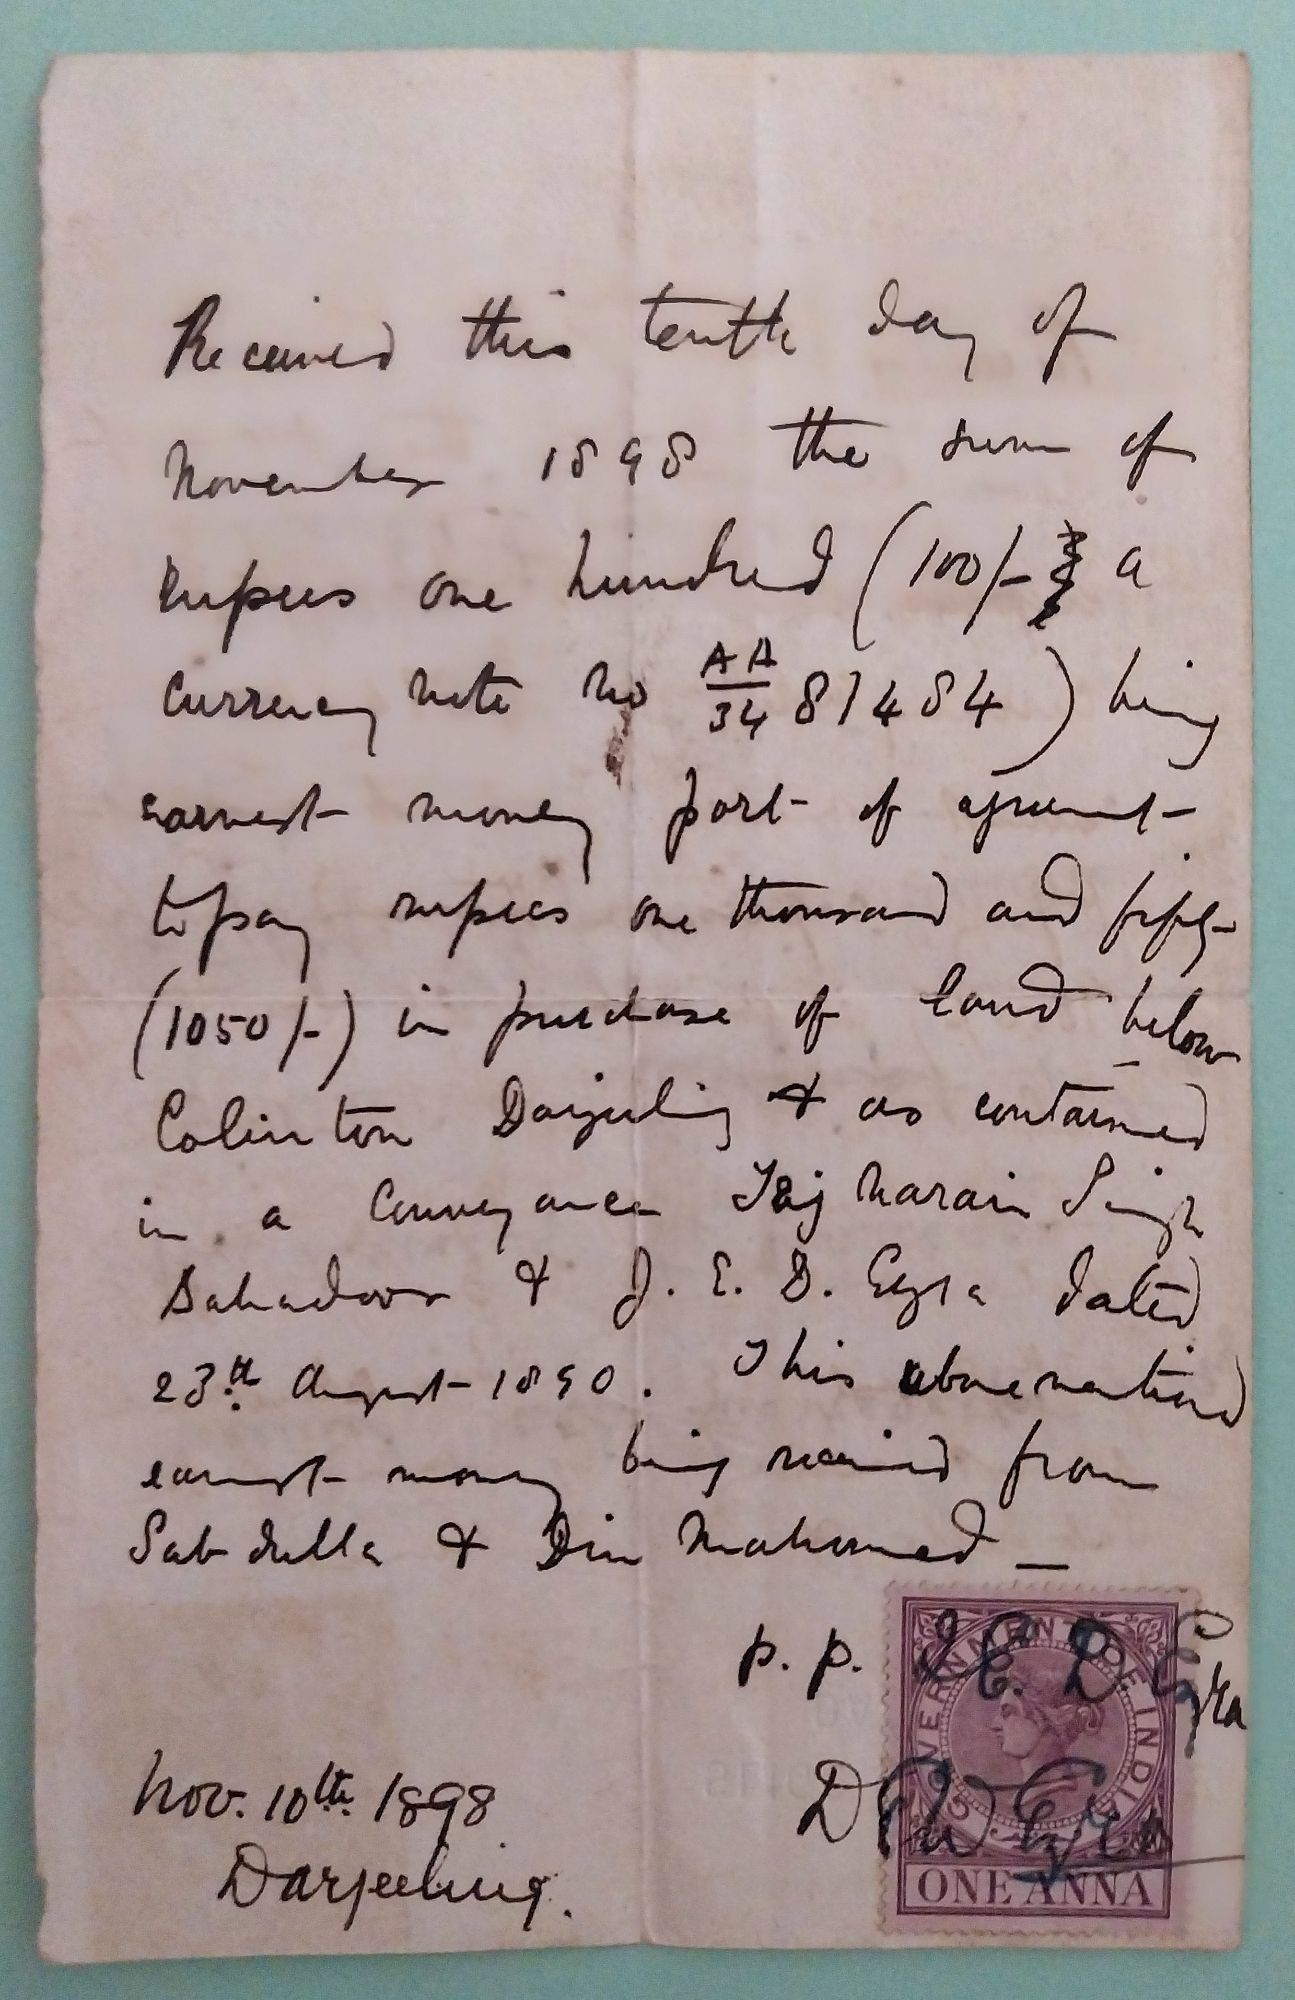 Received this tenth day of
November 1898 the sum of
Rupees one hundred (100/- a
Currency note no AA/34 81484) being
earnest money part of agreement
to pay rupees one thousand and fifty
(1050/-) in purchase of land below
Colinton Darjeeling & as contained
in a Conveyance Tej Narain Singh
Bahadoor & J. E. D. Ezra dated
23th August 1890. This abovementioned
earnest money being received from
Sabdulla & Din Mahomed —
p. p. J. E. D. Ezra
Ezra
GOVERNMENT OF INDIA
ONE ANNA
Nov. 10th 1898
Darjeeling.